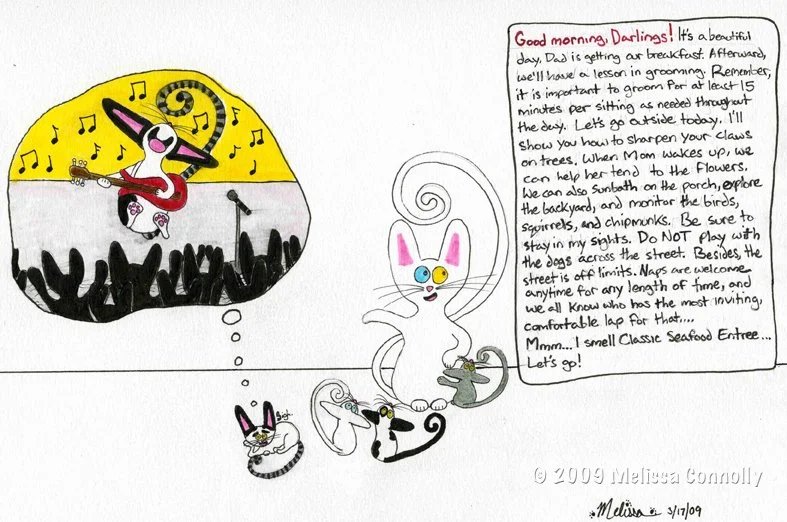 Good morning, Darlings! It's a beautiful
day. Dad is getting our breakfast. Afterward,
we'll have a lesson in grooming. Remember,
it is important to groom for at least 15
minutes per sitting as needed throughout
the day. Let's go outside today. I'll
show you how to sharpen your claws
on trees. When Mom wakes up, we
can help her tend to the flowers.
We can also sunbath on the porch, explore
the backyard, and monitor the birds,
squirrels, and chipmunks. Be sure to
stay in my sights. Do NOT play with
the dogs across the street. Besides, the
street is off limits. Naps are welcome
anytime for any length of time, and
we all know who has the most inviting,
comfortable lap for that....
Mmm... I smell Classic Seafood Entree...
Let's go!
Sigh
© 2009 Melissa Connolly
Melissa 3/17/09